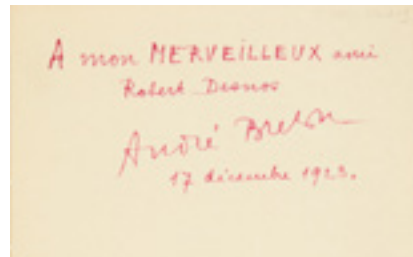 A mon MERVEILLEUX ami
Robert Desnos
André Breton
17 décembre 1923.